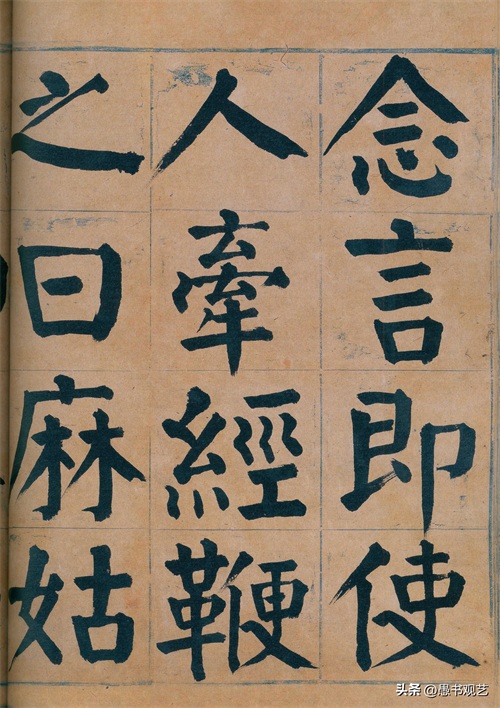 念言即使
人牽經鞭
之曰麻姑
头条 @愚书观艺